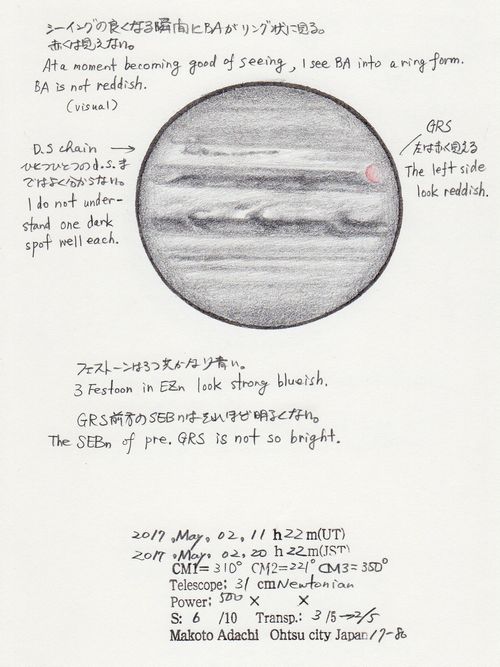 シーイングの良くなる瞬間にBAがリング状に見る。
赤くは見えない。
At a moment becoming good of seeing, I see BA into a ring form.
BA is not reddish.
(visual)
D.S chain →
ひとつひとつのd.s.ま
ではよく分からない。
I do not under-
stand one dark
spot well each.
GRS
左は赤く見える
The left side
look reddish.
フェストーンは3つ共かなり青い。
3 Festoon in EZn look strong blueish.
GRS前方のSEBnはそれほど明るくない。
The SEBn of pre. GRS is not so bright.
2017.May.02.11 h22m(UT)
2017.May.02.20 h22m(JST)
CM1=310° CM2=221° CM3=350°
Telescope: 31 cm Newtonian
Power: 500 × ×
S: 6 /10 Transp.: 3/5→2/5
Makoto Adachi Ohtsu city Japan 17-86